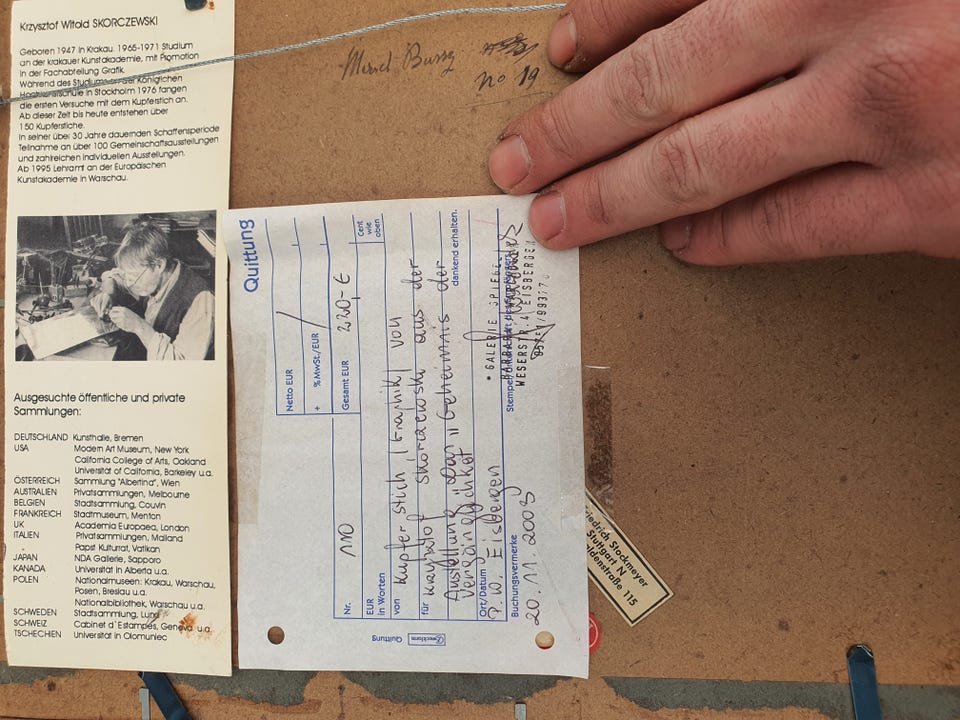 Krzysztof Witold SKORCZEWSKI
Geboren 1947 in Krakau. 1965-1971 Studium
an der krakauer Kunstakademie, mit Promotion
in der Fachabteilung Grafik.
Während des Studiums an der Königlichen
Hochkunstschule in Stockholm 1976 fangen
die ersten Versuche mit dem Kupferstich an.
Ab dieser Zeit bis heute entstehen über
150 Kupferstiche.
In seiner über 30 Jahre dauernden Schaffensperiode
Teilnahme an über 100 Gemeinschaftsausstellungen
und zahlreichen individuellen Ausstellungen.
Ab 1995 Lehramt an der Europäischen
Kunstakademie in Warschau.
Ausgesuchte öffentliche und private
Sammlungen:
DEUTSCHLAND Kunsthalle, Bremen
USA Modern Art Museum, New York
California College of Arts, Oakland
Universität of California, Barkeley u.a.
ÖSTERREICH Sammlung "Albertina", Wien
AUSTRALIEN Privatsammlungen, Melbourne
BELGIEN Stadtsammlung, Couvin
FRANKREICH Stadtmuseum, Menton
UK Academia Europaea, London
ITALIEN Privatsammlungen, Mailand
Papst Kulturrat, Vatikan
JAPAN NDA Gallerie, Sapporo
KANADA Universität in Alberta u.a.
POLEN Nationalmuseen: Krakau, Warschau,
Posen, Breslau u.a.
Nationalbibliothek, Warschau u.a.
SCHWEDEN Stadtsammlung, Lund
SCHWEIZ Cabinet d'Estampes, Geneva u.a.
TSCHECHEN Universität in Olomuniec
no 19
Quittung
Netto EUR
+ % MwSt./EUR
Nr. 110 Gesamt EUR 220,- €
EUR
in Worten
Cent
wie
oben
von Kupferstich, (Graphik) von
für Krzysztof Skorczewski aus der
Ausstellung "Das Geheimnis der
Vergänglichkeit"
dankend erhalten.
Ort/Datum P.W. Eisbergen
Buchungsvermerke
20.11.2003
Stempel/Unterschrift des Empfängers
GALERIE SPIEGEL
BARBARA
WESERSTR. 4 EISBERGEN
Quittung
Zweckform
Friedrich Stockmeyer
Stuttgart N
115